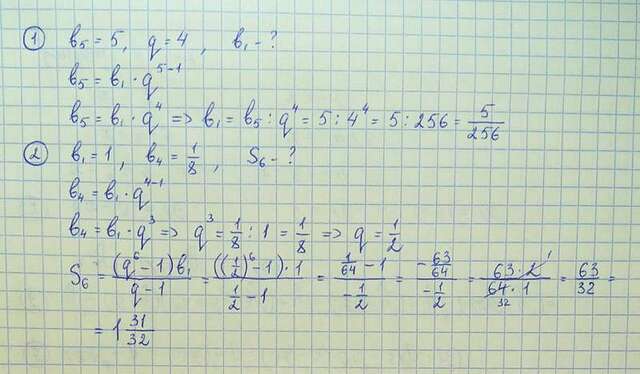 ① b₅ = 5, q = 4, b₁ - ?
b₅ = b₁ · q⁵⁻¹
b₅ = b₁ · q⁴ => b₁ = b₅ : q⁴ = 5 : 4⁴ = 5 : 256 = 5/256
② b₁ = 1, b₄ = 1/8, S₆ - ?
b₄ = b₁ · q⁴⁻¹
b₄ = b₁ · q³ => q³ = 1/8 : 1 = 1/8 => q = 1/2
S₆ = (q⁶ - 1)b₁/(q - 1) = ((1/2)⁶ - 1) · 1/(1/2 - 1) = (1/64 - 1)/(-1/2) = (-63/64)/(-1/2) = 63 · 2 1/(64 32 · 1) = 63/32 =
= 1 31/32